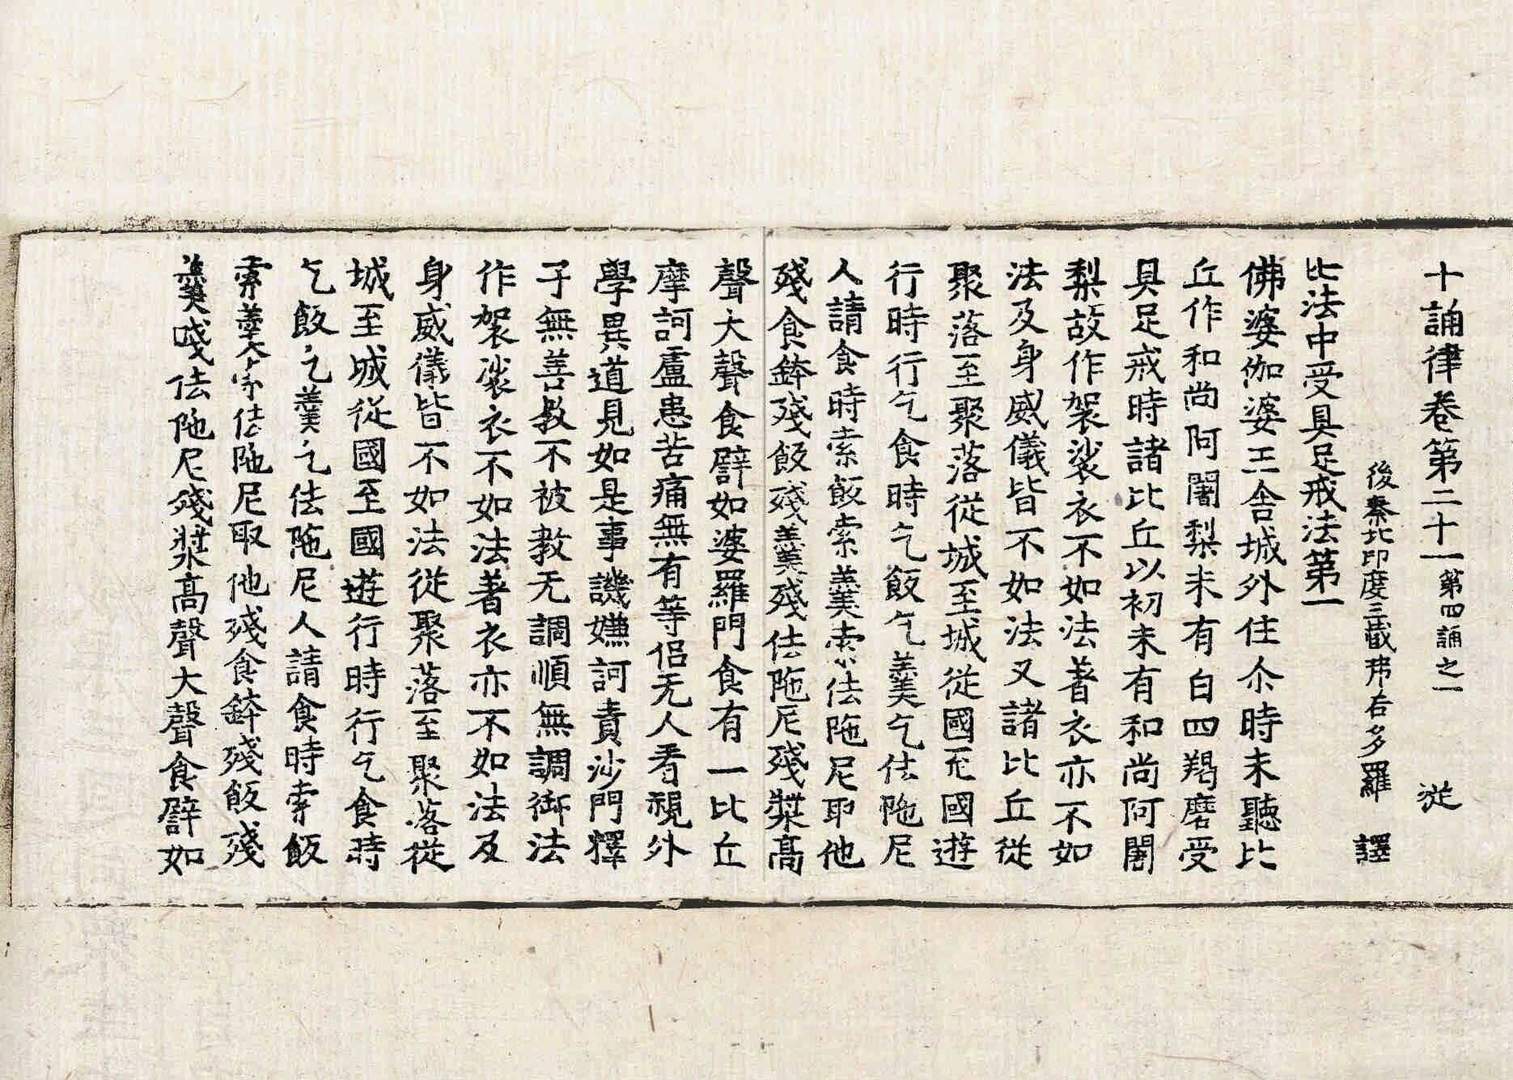 十誦律卷第二十一第四誦之一 從
後秦北印度三藏弗若多羅 譯
比法中受具足戒法第一
佛婆伽婆王舍城外住尒時未聽比
丘作和尚阿闍梨未有白四羯磨受
具足戒時諸比丘以初未有和尚阿闍
梨故作袈裟衣不如法著衣亦不如
法及身威儀皆不如法又諸比丘從
聚落至聚落從城至城從國至國遊
行時行乞食時乞飯乞羹乞佉陁尼
人請食時索飯索羹索佉陁尼取他
殘食鉢殘飯殘羹殘佉陁尼殘漿高
聲大聲食譬如婆羅門食有一比丘
摩訶盧患苦痛無有等侣无人看視外
學異道見如是事譏嫌訶責沙門釋
子無善教不被教无調順無調御法
作袈裟衣不如法著衣亦不如法及
身威儀皆不如法從聚落至聚落從
城至城從國至國遊行時行乞食時
乞飯乞羹乞佉陁尼人請食時索飯
索羹索佉陁尼取他殘食鉢殘飯殘
羹殘佉陁尼殘漿高聲大聲食譬如